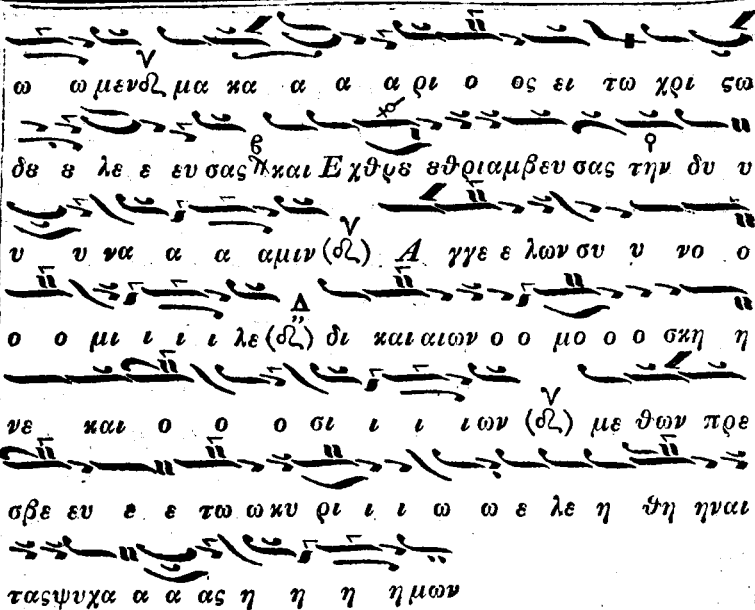 ω ω μεν μα κα α α α ρι ο ος ει τω χρι ςω
δȣ ȣ λε ε ευ σας και Ε χθρȣ ȣθριαμβευ σας την δυ υ
υ υ να α α αμιν Α γγε ε λων συ υ νο ο
ο ο μι ι ι ι λε δι και αιων ο ο μο ο ο σκη η
νε και ο ο ο σι ι ι ι ων με θων πρε
σβε ευ ε ε τω ω κυ ρι ι ι ω ω ε λε η θη ηναι
τας ψυχα α α ας η η η η μων